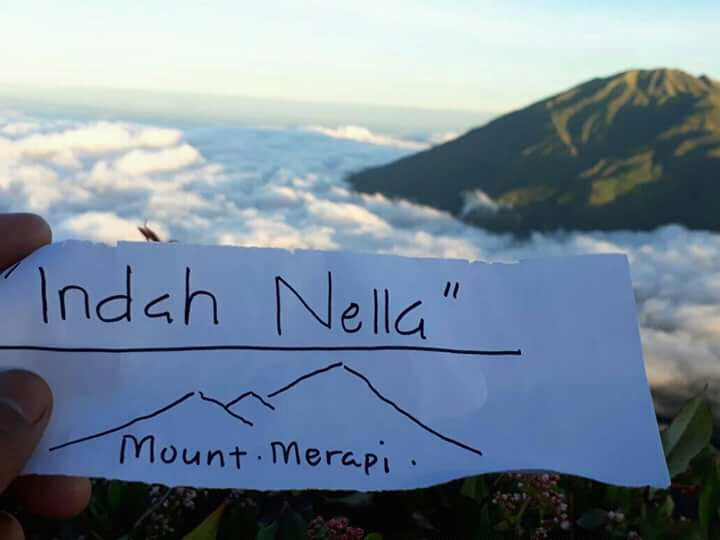 "Indah Nella"
Mount. Merapi.